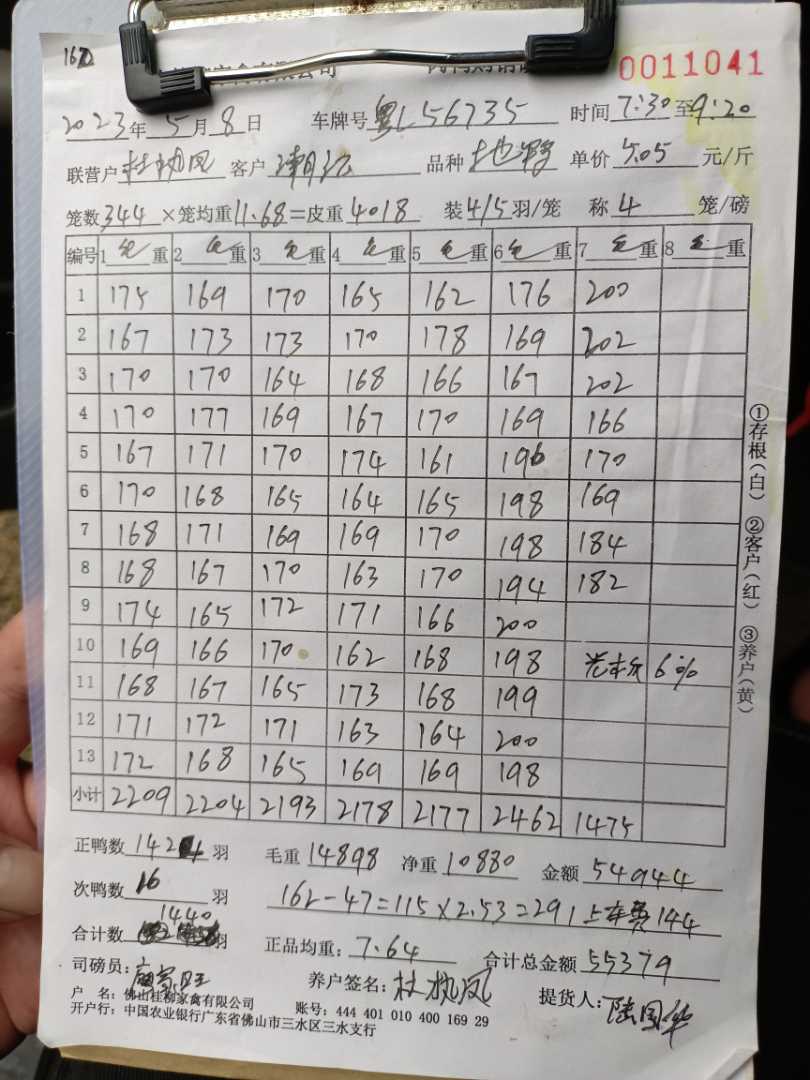 162
家禽有限公司
0011041
2023年5月8日 车牌号粤L56735 时间7:30至9:20
联营户杜执凤 客户 品种 单价5.05元/斤
笼数344×笼均重11.68=皮重4018 装4/5羽/笼 称4笼/磅
编号 1毛重 2毛重 3毛重 4毛重 5毛重 6毛重 7毛重 8毛重
1 175 169 170 165 162 176 200
2 167 173 173 170 178 169 202
3 170 170 164 168 166 167 202
4 170 177 169 167 170 169 166
5 167 171 170 174 161 196 170
6 170 168 165 164 165 198 169
7 168 171 169 169 170 198 184
8 168 167 170 163 170 194 182
9 174 165 172 171 166 200
10 169 166 170 162 168 198 6%
11 168 167 165 173 168 199
12 171 172 171 163 164 200
13 172 168 165 169 169 198
小计 2209 2204 2193 2178 2177 2462 1475
①存根(白) ②客户(红) ③养户(黄)
正鸭数1424羽 毛重14898 净重10880 金额54944
次鸭数16羽 162-47=115×2.53=291上车费144
合计数1440羽 正品均重:7.64 合计总金额55379
司磅员: 养户签名:杜执凤 提货人:陆国华
户 名:佛山桂柳家禽有限公司 账号:444 401 010 400 169 29
开户行:中国农业银行广东省佛山市三水区三水支行